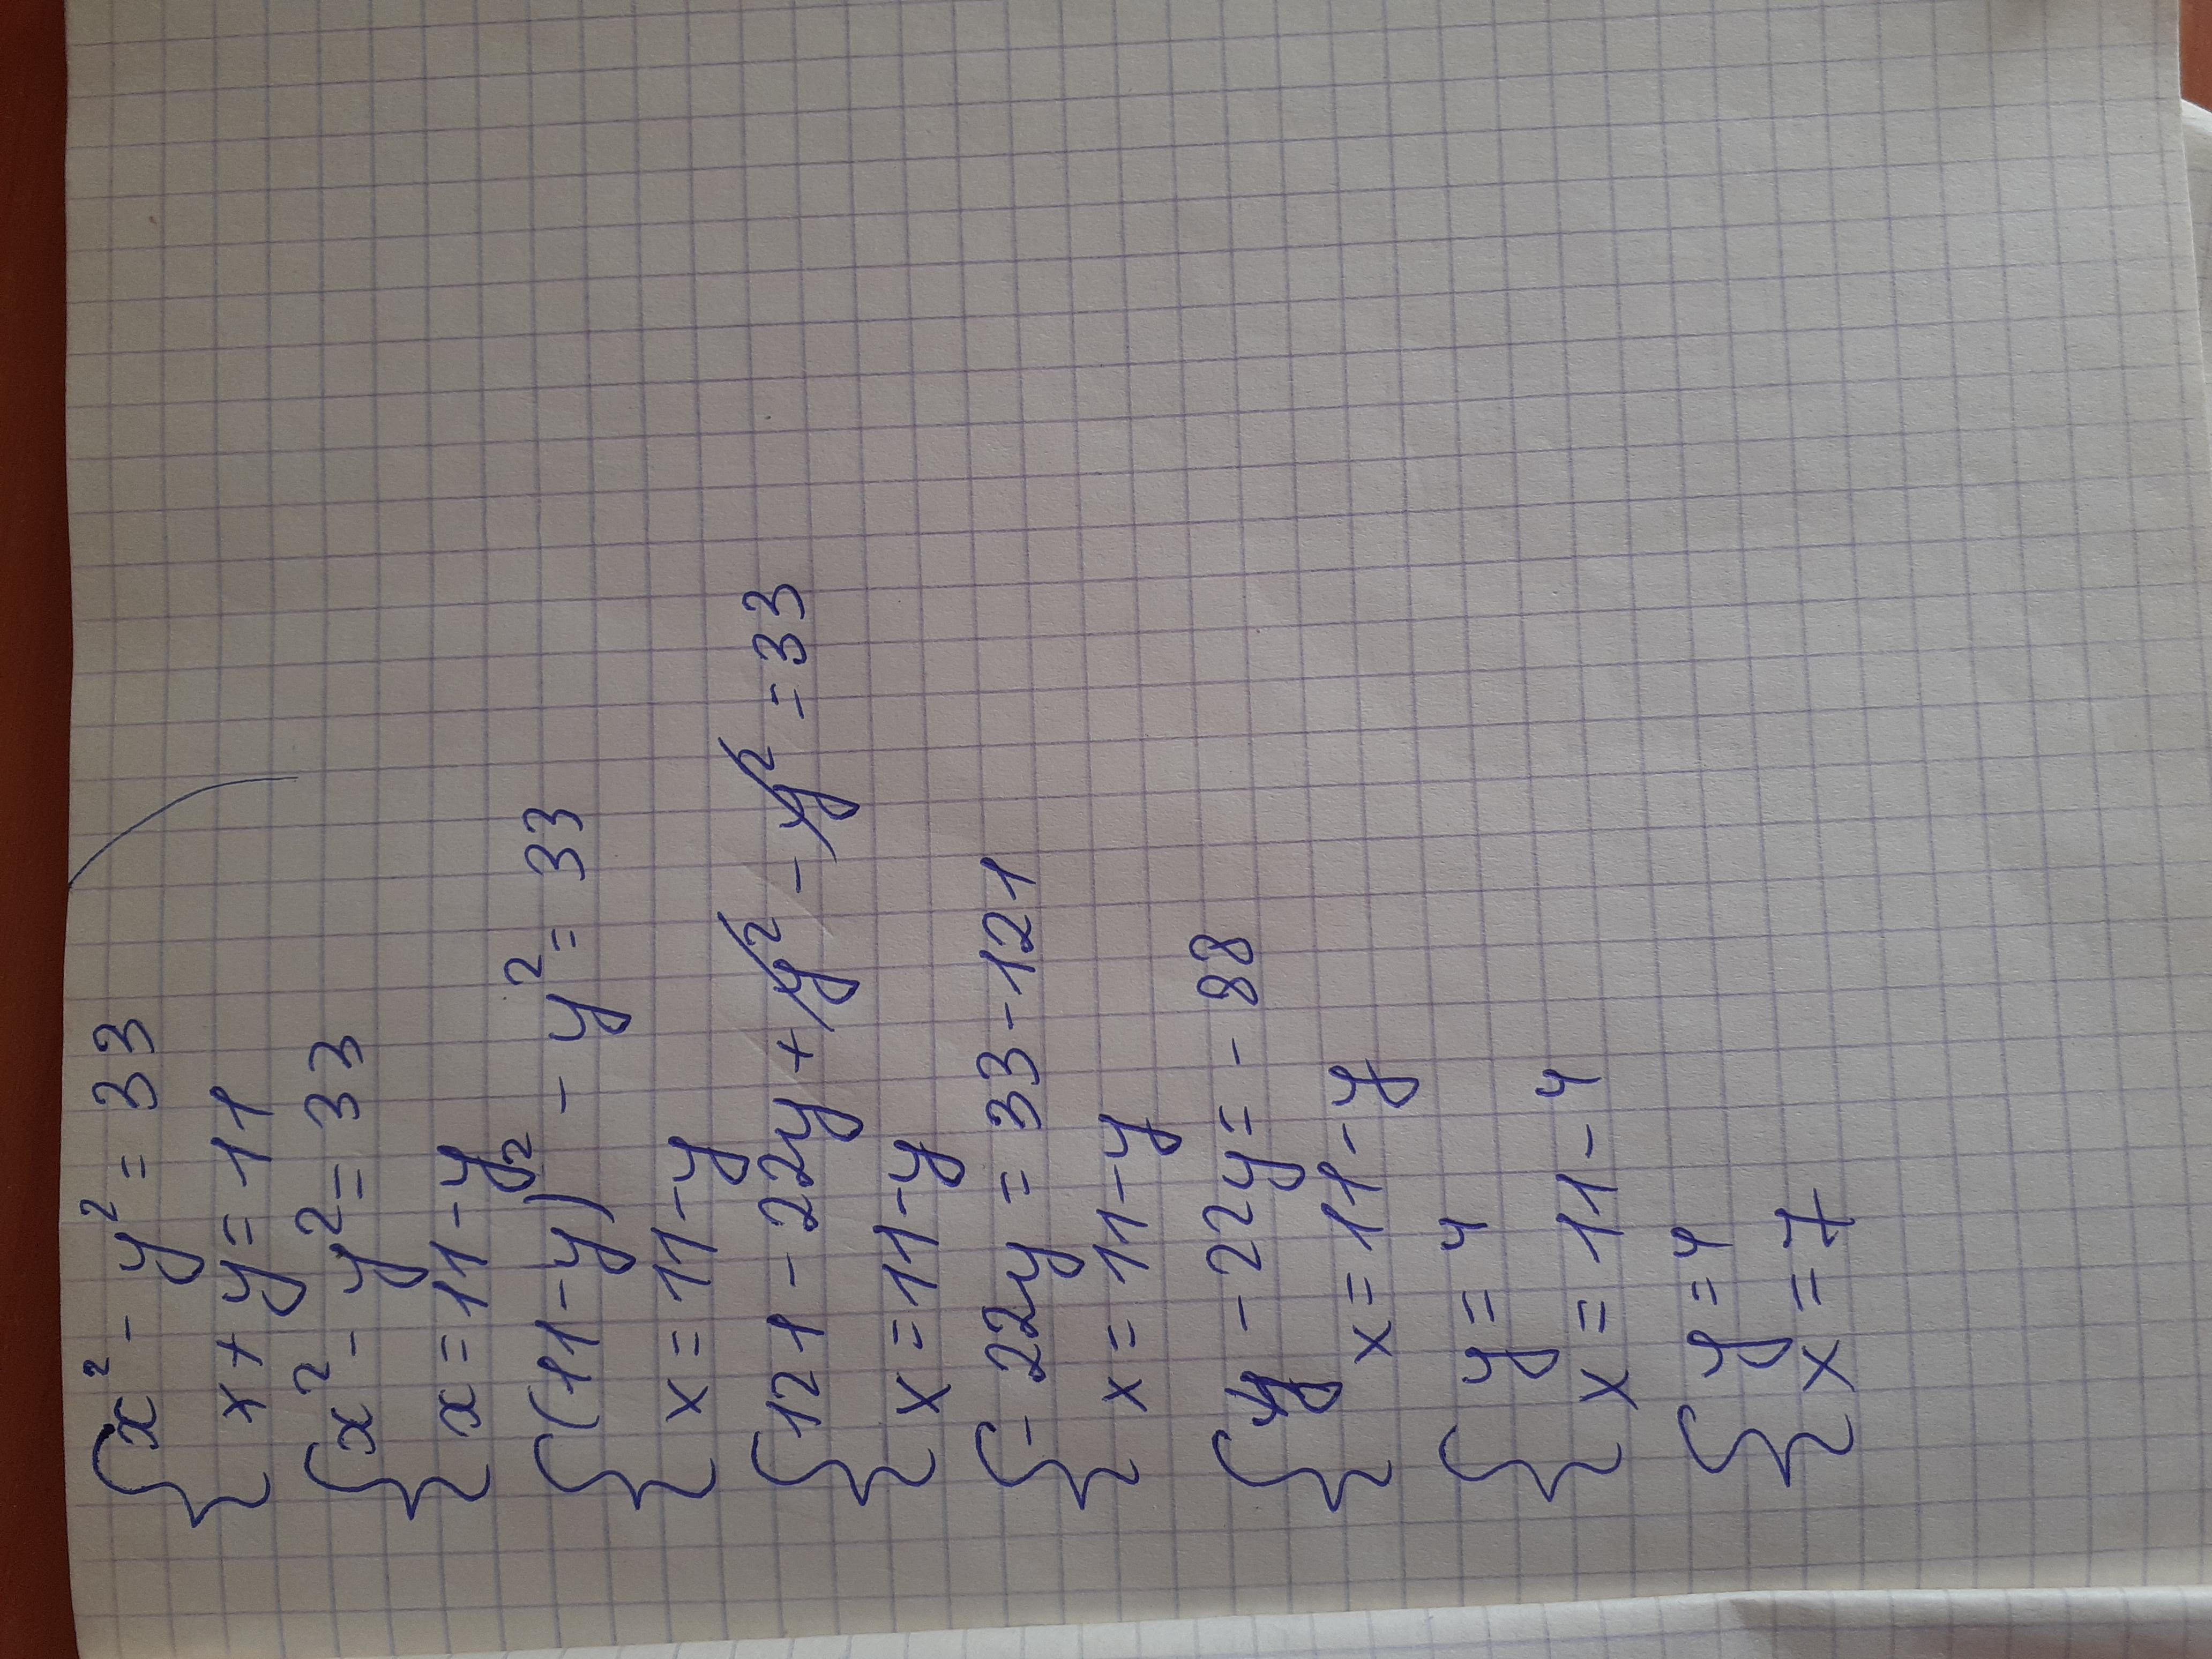 x² - y² = 33
x + y = 11
x² - y² = 33
x = 11 - y
(11 - y)² - y² = 33
x = 11 - y
121 - 22y + y² - y² = 33
x = 11 - y
- 22y = 33 - 121
x = 11 - y
- 22y = - 88
x = 11 - y
y = 4
x = 11 - 4
y = 4
x = 7